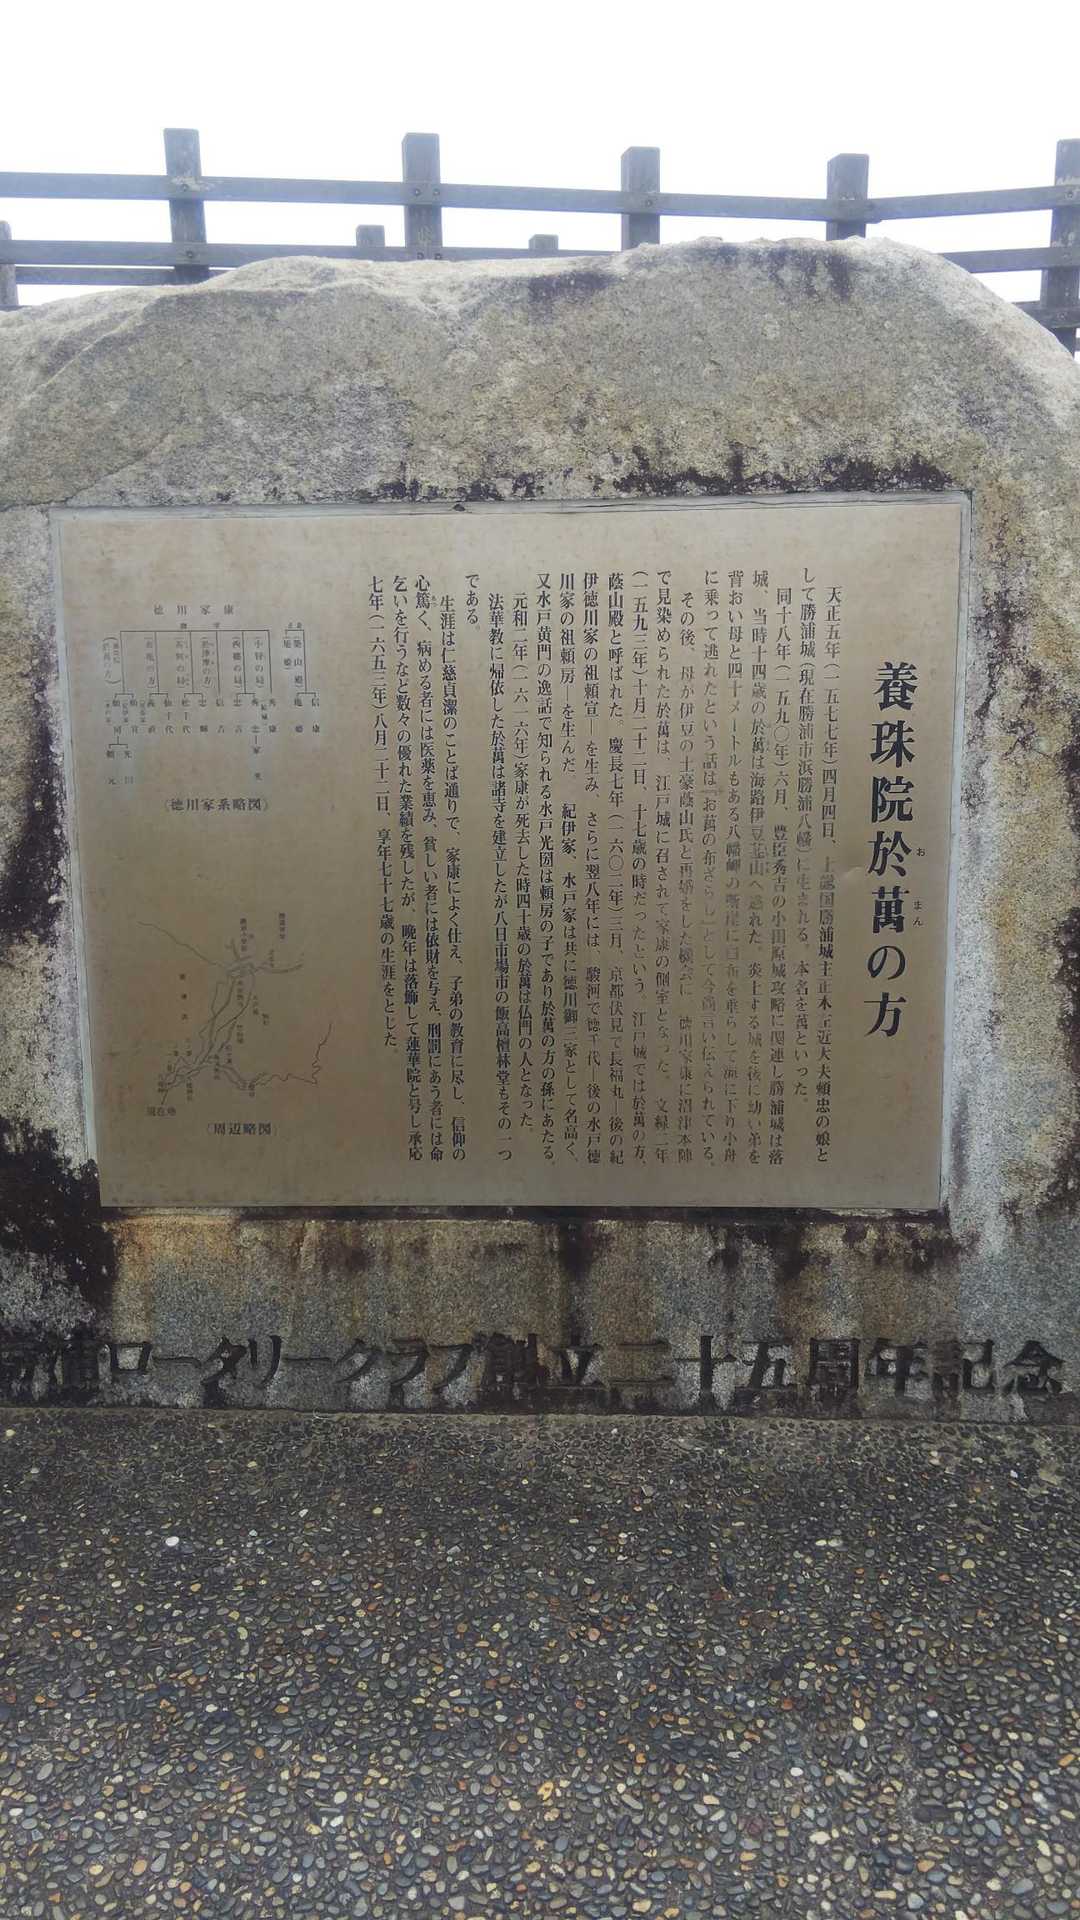 養珠院於萬の方
お まん
天正五年（一五七七年）四月四日、上総国勝浦城主正木左近大夫頼忠の娘と
して勝浦城（現在勝浦市浜勝浦八幡）に生まれる。本名を萬といった。
同十八年（一五九〇年）六月、豊臣秀吉の小田原城攻略に関連し勝浦城は落
城、当時十四歳の於萬は海路伊豆韮山へ逃れた。炎上する城を後に幼い弟を
背おい母と四十メートルもある八幡岬の断崖に白布を垂らして海に下り小舟
に乗って逃れたという話は『お萬の布ざらし』として今尚言い伝えられている。
その後、母が伊豆の土豪蔭山氏と再婚をした機会に 徳川家康に沼津本陣
で見染められた於萬は、江戸城に召されて家康の側室となった。文緑二年
（一五九三年）十月二十二日、十七歳の時だったという。江戸城では於萬の方、
蔭山殿と呼ばれた。慶長七年（一六〇二年）三月、京都伏見で長福丸―後の紀
伊徳川家の祖頼宣―を生み、さらに翌八年には、駿河で徳千代―後の水戸徳
川家の祖頼房―を生んだ。 紀伊家、水戸家は共に徳川御三家として名高く、
又水戸黄門の逸話で知られる水戸光圀は頼房の子であり於萬の方の孫にあたる。
元和二年（一六一六年）家康が死去した時四十歳の於萬は仏門の人となった。
法華教に帰依した於萬は諸寺を建立したが八日市場市の飯高檀林堂もその一つ
である。
生涯は仁慈貞潔のことば通りで、家康によく仕え、子弟の教育に尽し、信仰の
心篤く、病める者には医薬を恵み、貧しい者には依財を与え、刑罰にあう者には命
乞いを行うなど数々の優れた業績を残したが、晩年は落飾して蓮華院と号し承応
七年（一六五三年）八月二十二日、享年七十七歳の生涯をとした。
徳川家康
築山殿
信康
亀姫
小督の局
秀康
西郷の局
秀忠―家光
忠吉
於津摩の方
信吉
忠輝
松千代
仙千代
義直
頼宣
頼房
光圀
頼元
（徳川家系略図）
現在地
（周辺略図）
浦ロータリークラブ創立二十五周年記念